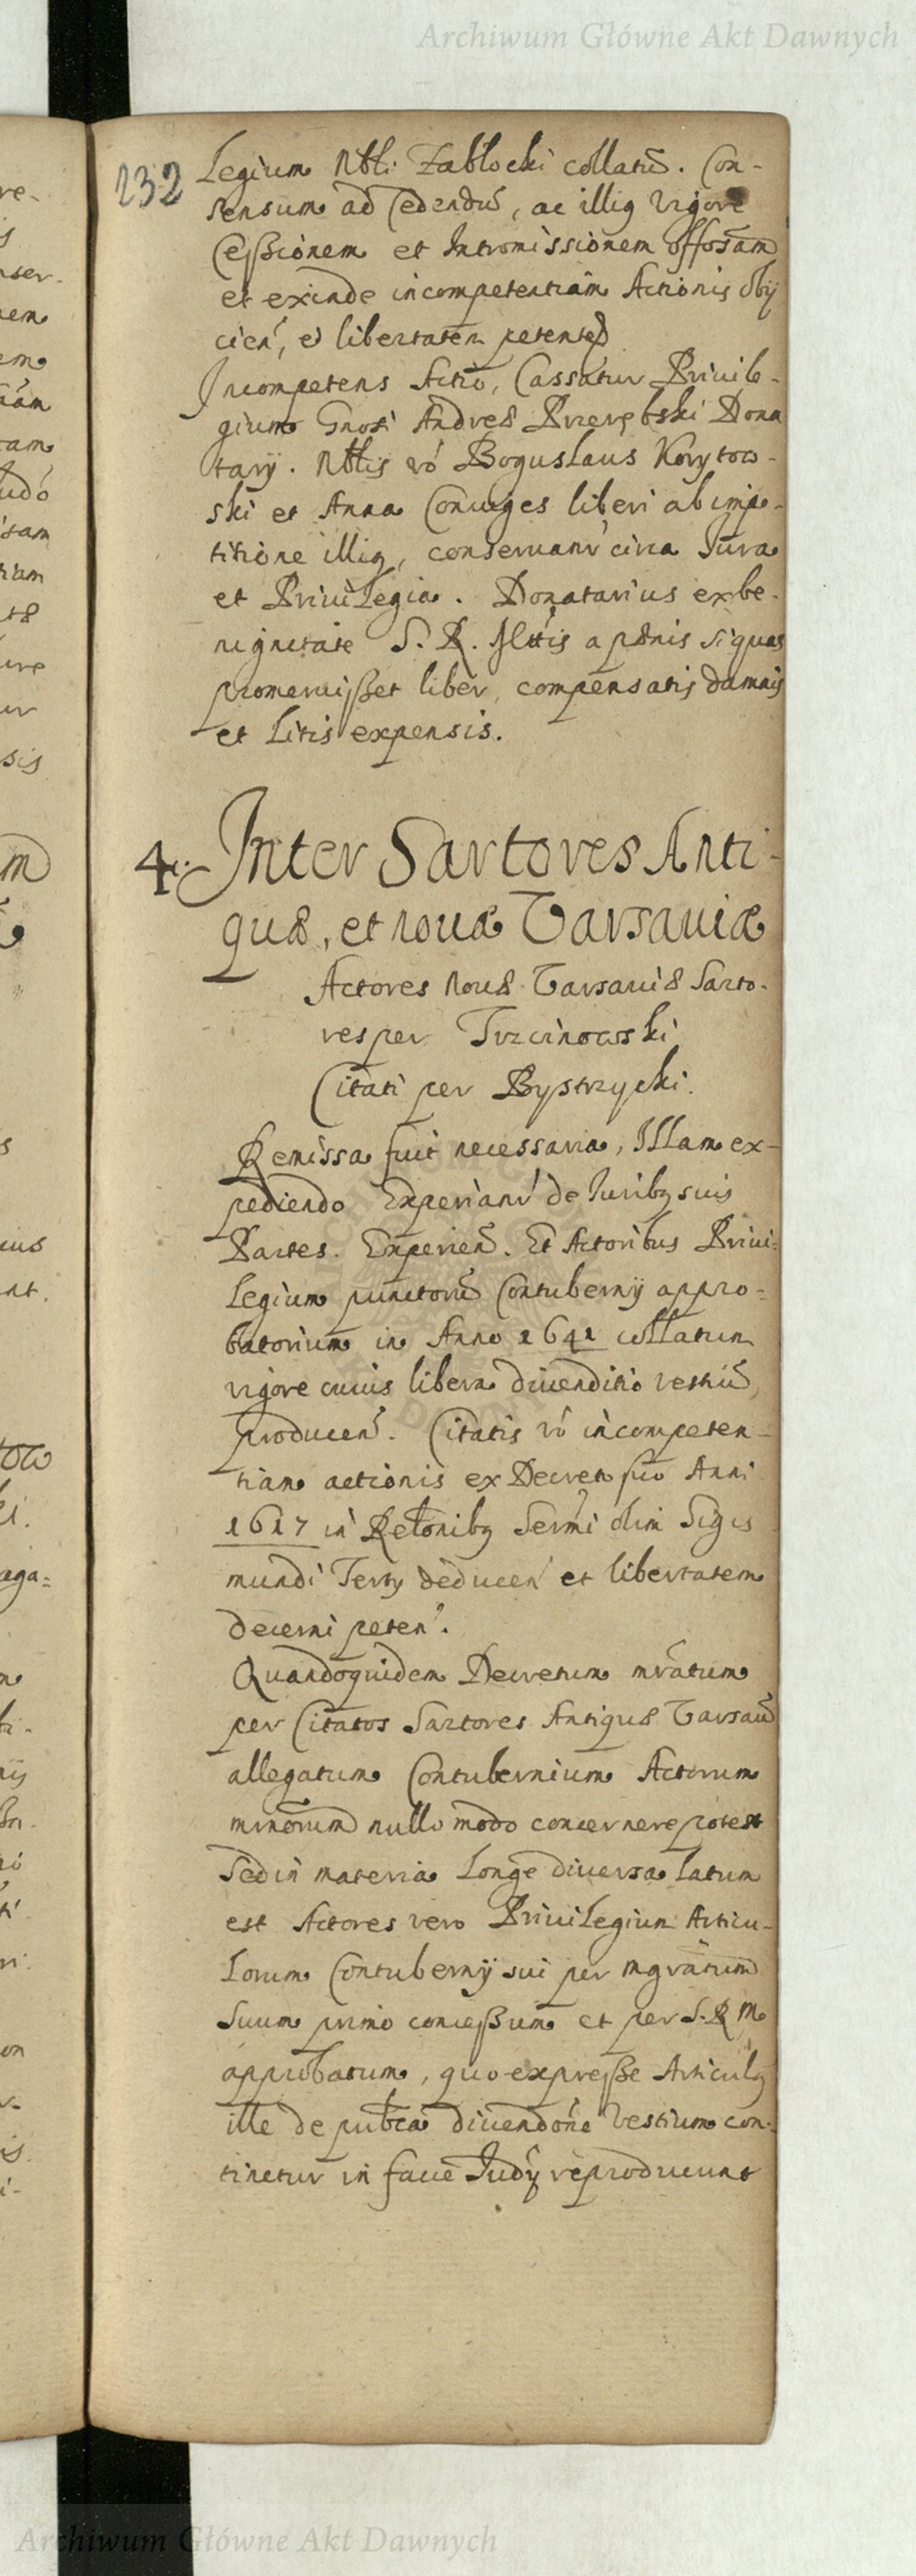 Archiwum Główne Akt Dawnych
232
legium Nbli Zabłocki collatũ. Con-
sensum ad Cedendũ, ac illig vigore
Ceßionem et Intromissionem
et exinde incompetentiam Actionis obij
cien, et libertatem petented
Incompetens Actio, Cassatur Privile-
gium Gnosi Andreæ Dona
tarij. Nblis vo Boguslaus Korytow-
ski et Anna Coniuges liberi ab impe-
titione illig, conseruanr circa Iura
et Priuilegia. Donatarius ex be-
nignitate S. R. Mttis a pænis si quas
promeruißet liber, compensatis damnis
et litis expensis.
4. Inter Sartores Anti-
quæ, et nouæ Varsauiæ
Actores nouæ Varsauiæ Sarto-
res per Trzcinowski
Citati per Bystrzycki.
Remissa fuit necessaria, Illam ex-
pediendo Experianr de Iuribg suis
Partes. Experien. Et Actoribus Priui-
legium punctorũ Contubernij appro-
batorium in Anno 1641 collatum
vigore cuius libera diuenditio vestiũ,
producen. Citatis vo incompeten-
tiam actionis ex Decreto suo Anni
1617 in Relonibg Sermi olim Sigis
mundi Tertij deducen et libertatem
decerni peten.
Quandoquidem Decretum mratum
per Citatos Sartores Antiquæ Varsau
allegatum Contubernium Actorum
mrnorum nullo modo concernere potest
sed in materia longe diuersa latum
est Actores vero Priuilegium Articu-
lorum Contubernij sui per mgratum
suum primo conceßum et per S. R M
approbatum, quo expreße Articulg
ille de publca diuendone vestium con-
tinetur in facie Iudij reproducunt
Archiwum Główne Akt Dawnych